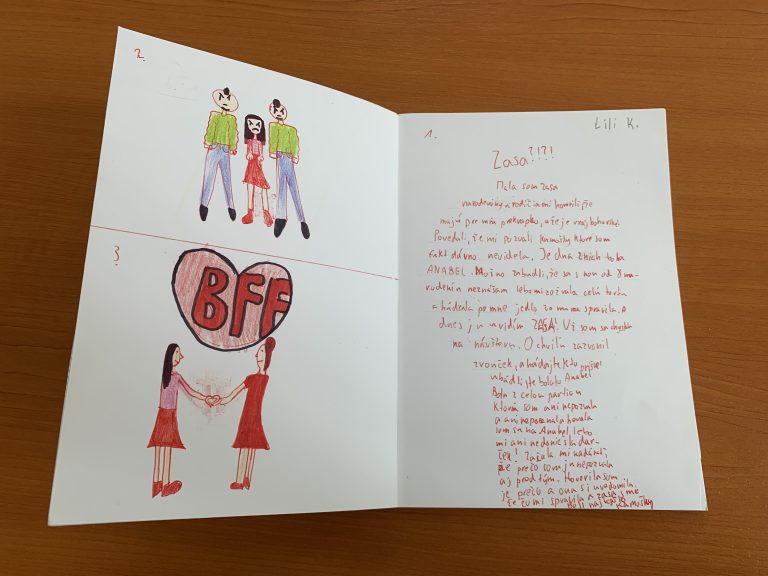 2.
BFF
3
Lili K.
1.
Zasa?!?!
Mala som zasa
narodeniny a rodičia mi hovorili že
majú pre mňa prekvapko, a že je
Povedali, že mi pozvali kamošky ktoré som
fakt dávno nevidela. Je dna z nich to ba
ANABEL. Možno zabudli, že sa s ňou od 8 na-
rodenín neznášam lebo mi zožrala celú tortu
a hádzala po mne jedlo čo mama spravila. A
dnes ju uvidím ZASA! Už som sa chystala
na návštevu. O chvíľu zazvonil
zvonček, a hádajte kto prišiel
uhádli ste bola to Anabel
Bola z celou partiou
ktorú som ani nepozvala
a ani nepoznala hovala
som sa na Anabel lebo
mi ani nedoniesla dar-
ček! Začala mi nadávať,
že prečo som ju nepozvala
aj pred tým. Hovorila som
je prečo a ona si uvedomila
že čo mi spravila a zasa sme
boli najlepšie kamošky